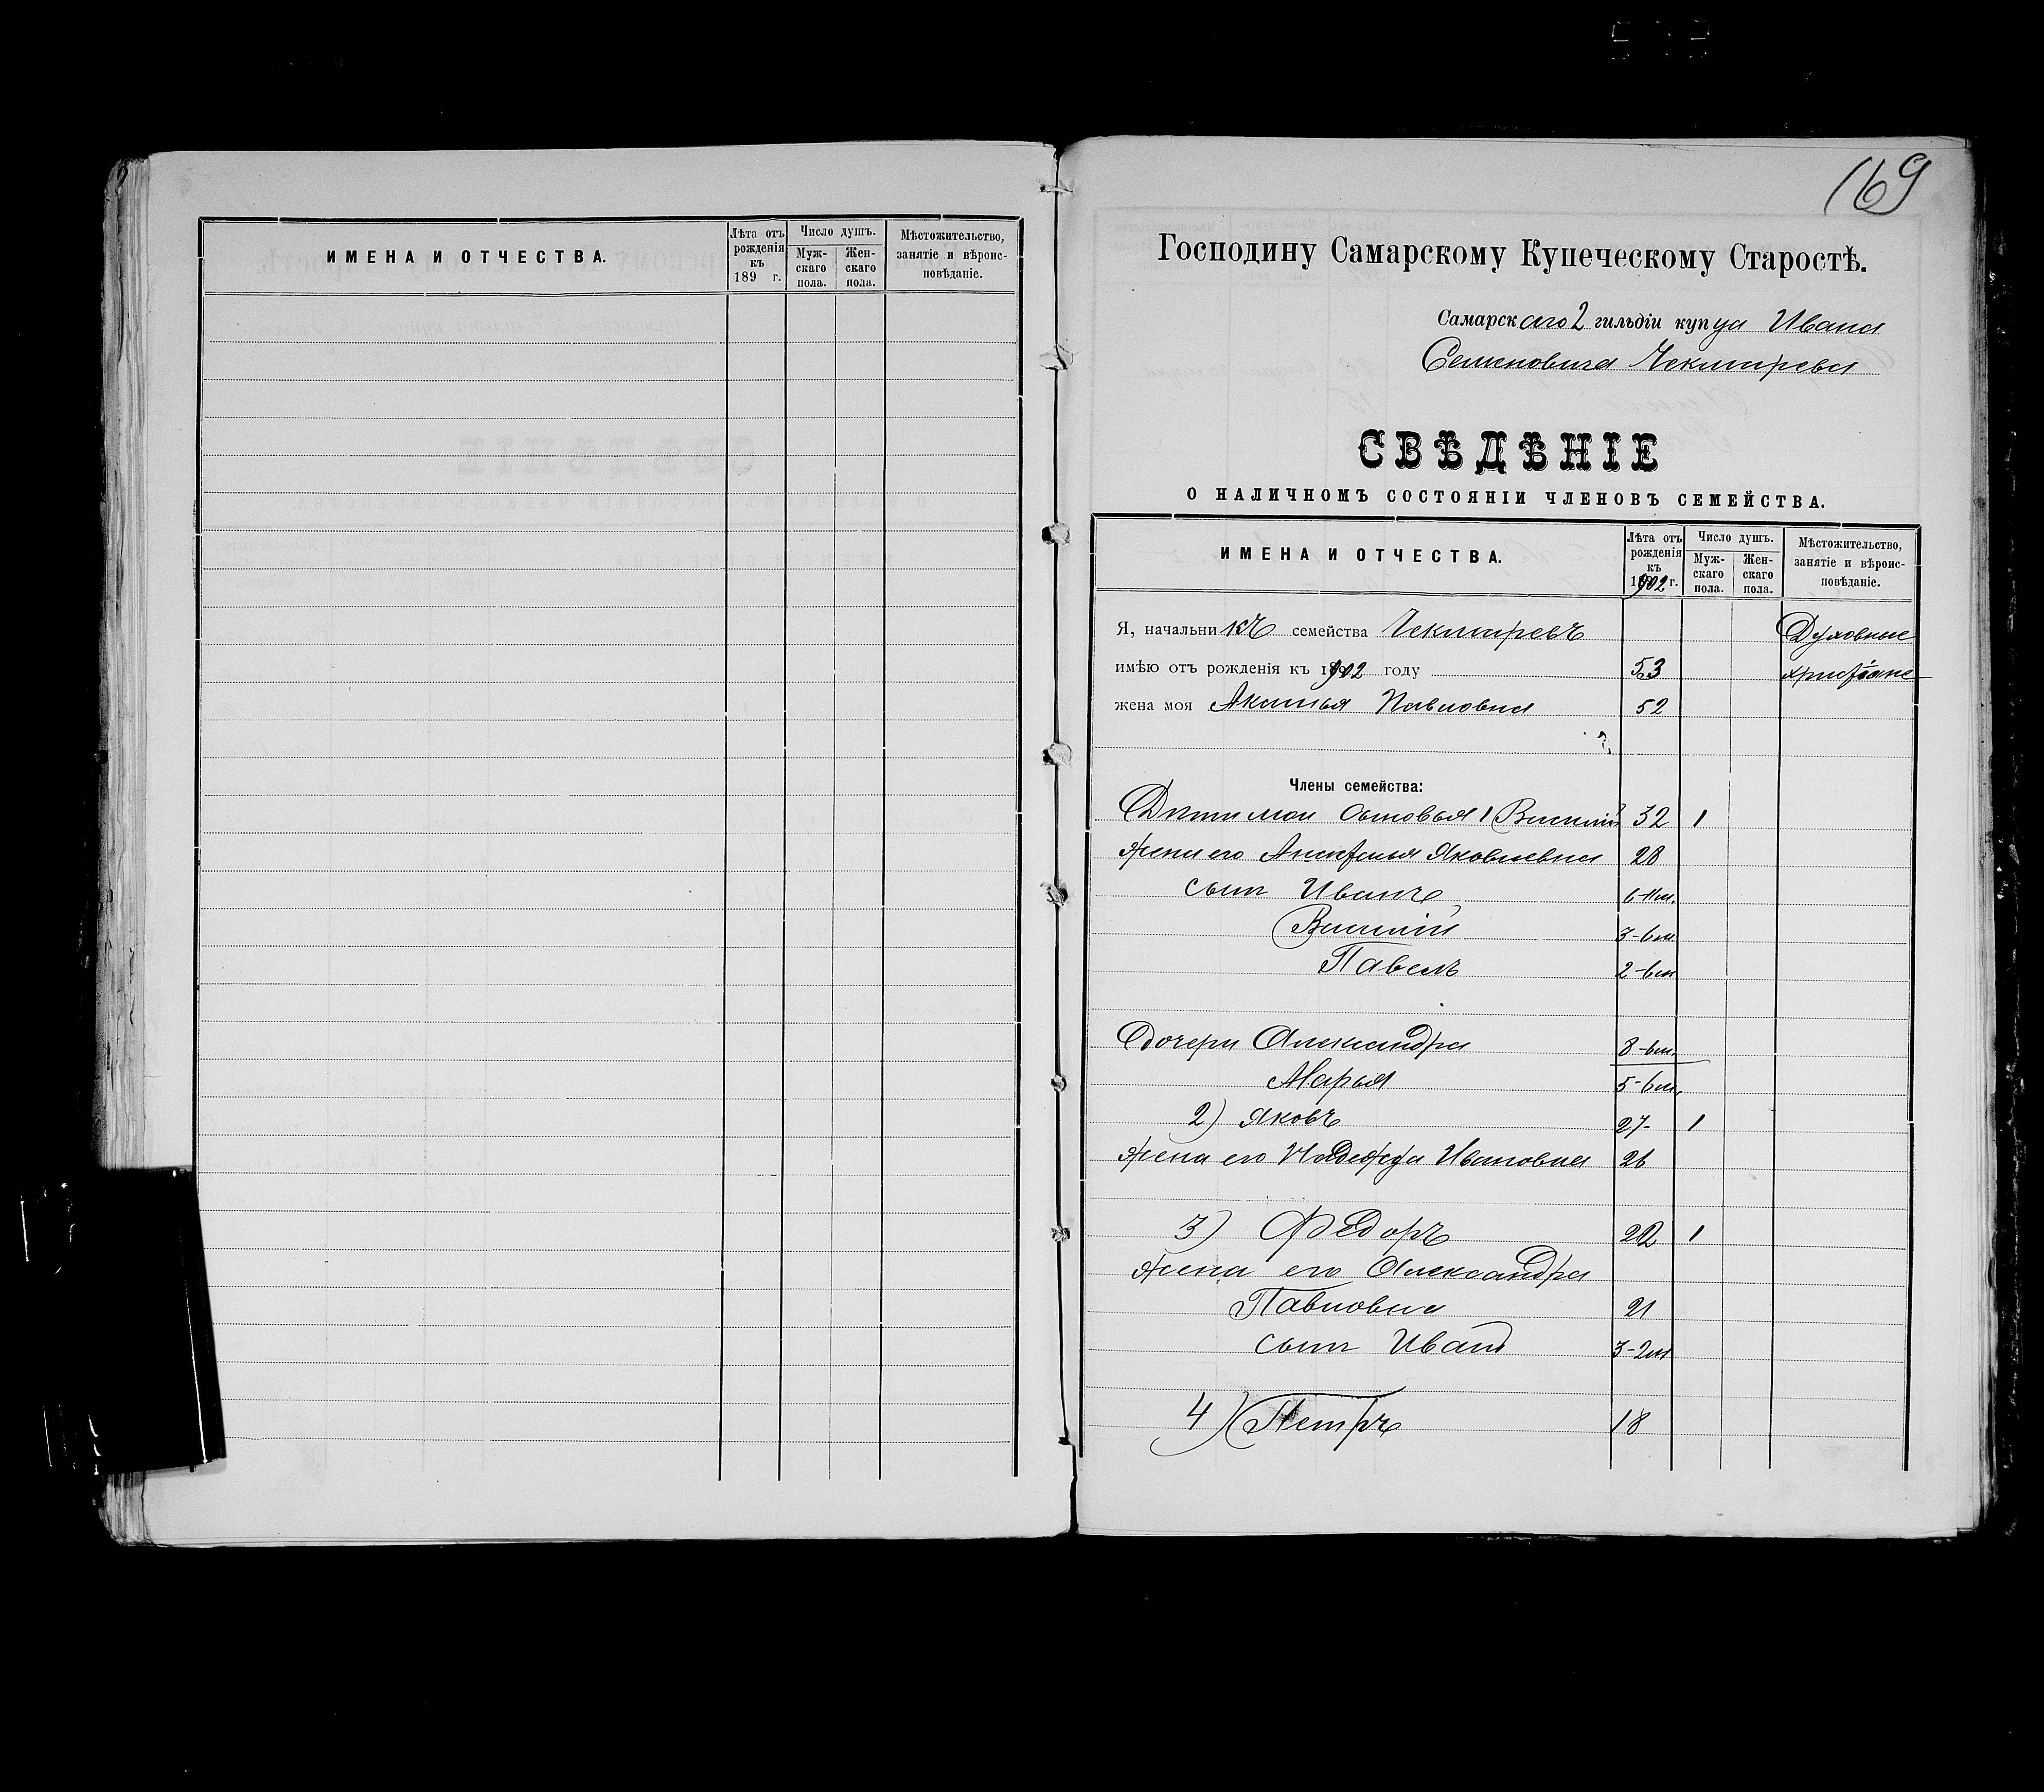 ИМЕНА И ОТЧЕСТВА.
Лѣта отъ рожденія къ 189 г.
Число душъ.
Мужскаго пола.
Женскаго пола.
Мѣстожительство, занятіе и вѣроисповѣданіе.
169
Господину Самарскому Купеческому Старостѣ.
Самарскаго 2 гильдіи купца Ивана
Семеновича Чекмарева
СВѢДѢНІЕ
О НАЛИЧНОМЪ СОСТОЯНІИ ЧЛЕНОВЪ СЕМЕЙСТВА.
ИМЕНА И ОТЧЕСТВА.
Лѣта отъ рожденія къ 1902 г.
Число душъ.
Мужскаго пола.
Женскаго пола.
Мѣстожительство, занятіе и вѣроисповѣданіе.
Я, начальникъ семейства Чекмаревъ Духовные
имѣю отъ рожденія къ 1902 году 53 христіане
жена моя Павловна 52
Члены семейства:
Дѣти мои сыновья 1 Василій 32 1
жена его Яковлевна 28
сын Иванъ 6-11м.
Василій 3-6м
Павелъ 2-6м
Дочери Александра 8-6м.
Марья 5-6м.
2) Яковъ 27- 1
жена его Надежда Ивановна 26
3) Федоръ 22 1
жена его Александра
Павловна 21
сын Иванъ 3-2м
4) Петръ 18